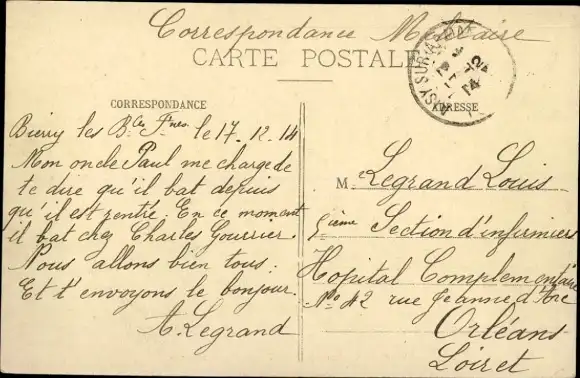 Correspondance Militaire
CARTE POSTALE
CORRESPONDANCE
ADRESSE
Bierry les B.les F.nes le 17.12.14
Mon oncle Paul me charge de
te dire qu'il bat depuis
qu'il est rentré. En ce moment
il bat chez Charles Gourrier.
Nous allons bien tous.
Et t'envoyons le bonjour.
A. Legrand
M Legrand Louis
5ième Section d'infirmiers
Hopital Complementaire
No 42 rue Jeanne d'Arc
Orléans
Loiret